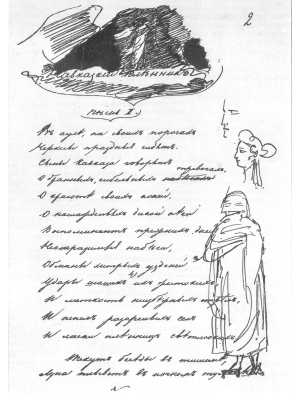 2
Кавказскій плѣнникъ
часть I.)
Въ аулѣ, на своихъ порогахъ
Черкесы праздные сидятъ.
Сыны Кавказа говорятъ
О бранныхъ, гибельныхъ тревогахъ,
О красотѣ своихъ коней,
О наслажденьяхъ дикой нѣги
Воспоминаютъ прежнихъ дней
Неотразимые набѣги,
Обманы хитрыхъ узденей,
Удары шашекъ ихъ
И меткость неизбѣжныхъ стрѣлъ,
И пепелъ разоренныхъ селъ
И ласки плѣнницъ
Текутъ бесѣды въ тишинѣ
Луна плыветъ въ ночномъ